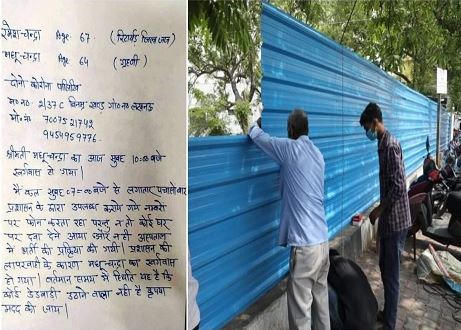 रमेश-चन्द्रा Age 67 (रिटायर्ड जिला जज)
मधु-चन्द्रा Age 64 (गृहणी)
दोनो कोरोना पॉजिटिव
म०न० 2/37 C विनम्र खण्ड गो०न० लखनऊ
मो०न० 7007521742
9454959776
श्रीमती मधु-चन्द्रा का आज सुबह 10:00 बजे
स्वर्गवास हो गया।
मै कल सुबह 07=00 बजे से लगातार पचासो बार
प्रशासन के द्वारा उपलब्ध कराये गये नम्बरो
पर फोन करता रहा परन्तु न तो कोई घर
पर दवा देने आया और न ही अस्पताल
मे भर्ती की प्रक्रिया की गयी। प्रशासन की
लापरवाही के कारण मधु-चन्द्रा का स्वर्गवास
हो गया। वर्तमान समय मे स्थिति यह है कि
कोई डेडबाडी उठाने वाला नही है कृपया
मदद की जाय।